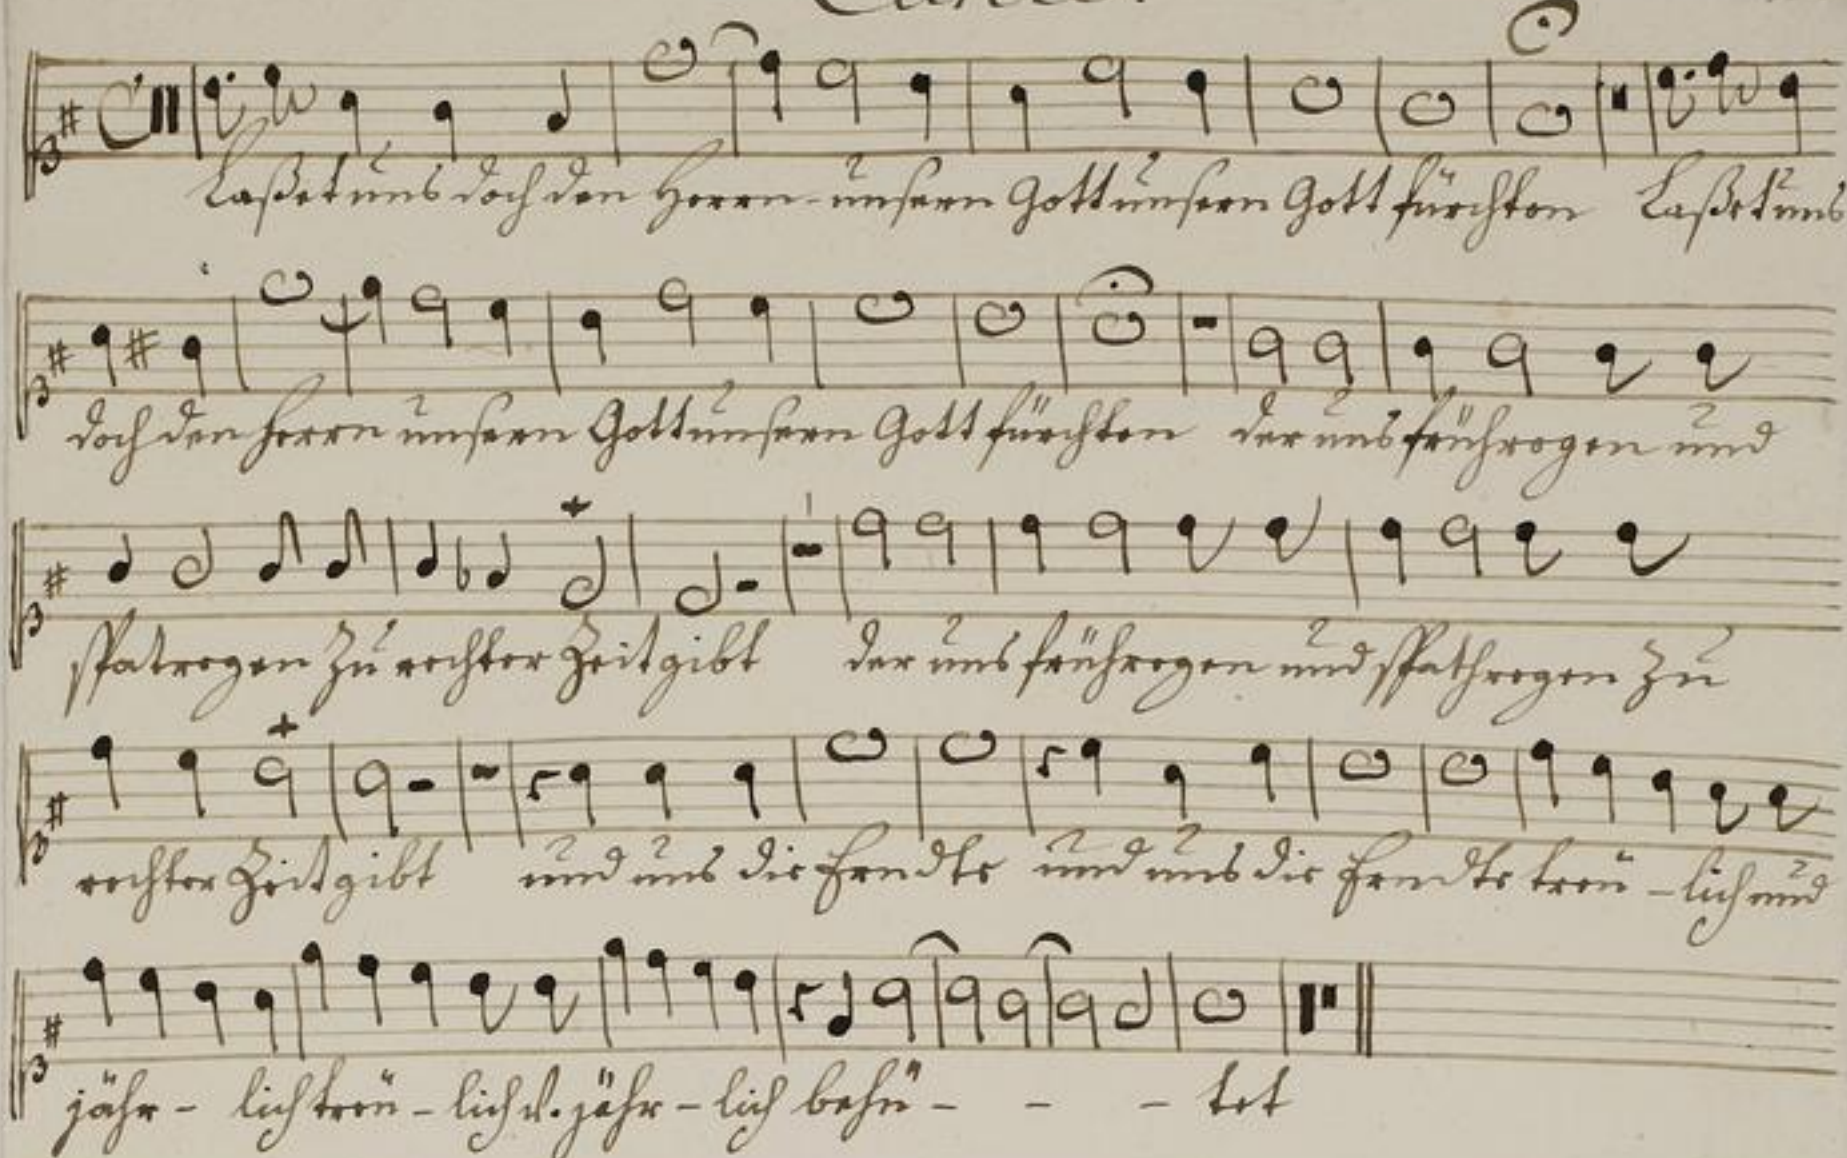 Laßet uns doch den Herrn - unsern Gott unsern Gott fürchten Laßet uns
doch den Herrn unsern Gott unsern Gott fürchten der uns frühregen und
spatregen zu rechter Zeit gibt der uns frühregen und spathregen zu
rechter Zeit gibt und uns die Erndte und uns die Erndte treü - lich und
jähr - lich treü - lich v. jähr - lich behü - - - tet